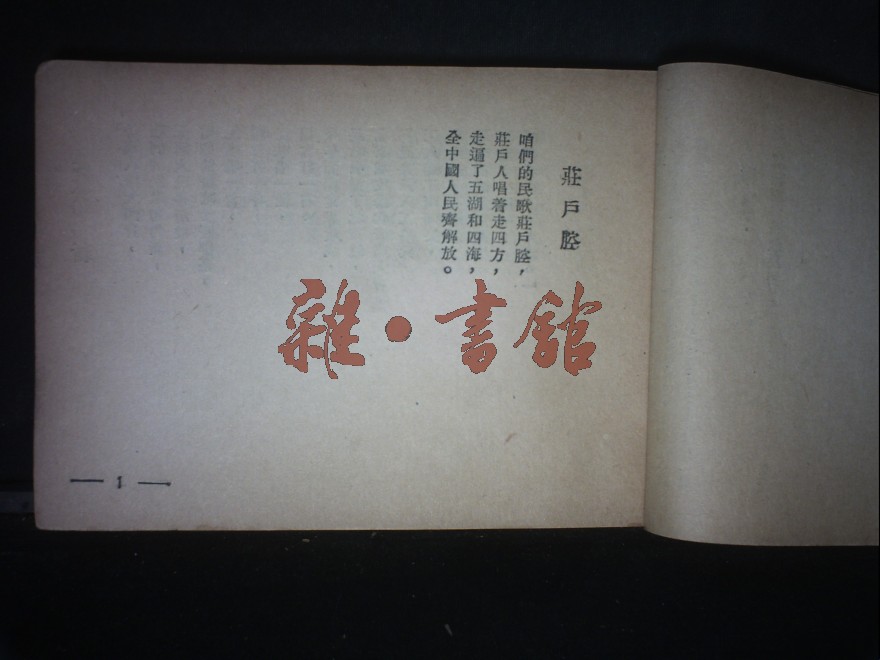 莊戶腔
咱們的民歌莊戶腔，
莊戶人唱着走四方，
走遍了五湖和四海，
全中國人民齊解放。
雜·書館
— 1 —